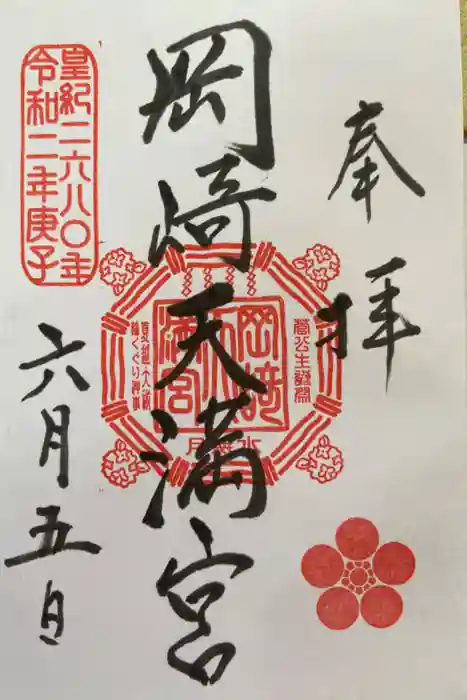 奉拝
岡崎天満宮
皇紀二六八〇年
令和二年庚子
六月五日
岡崎
天満宮
菅公生誕祭
夏越大祓
輪くぐり神事
水無月